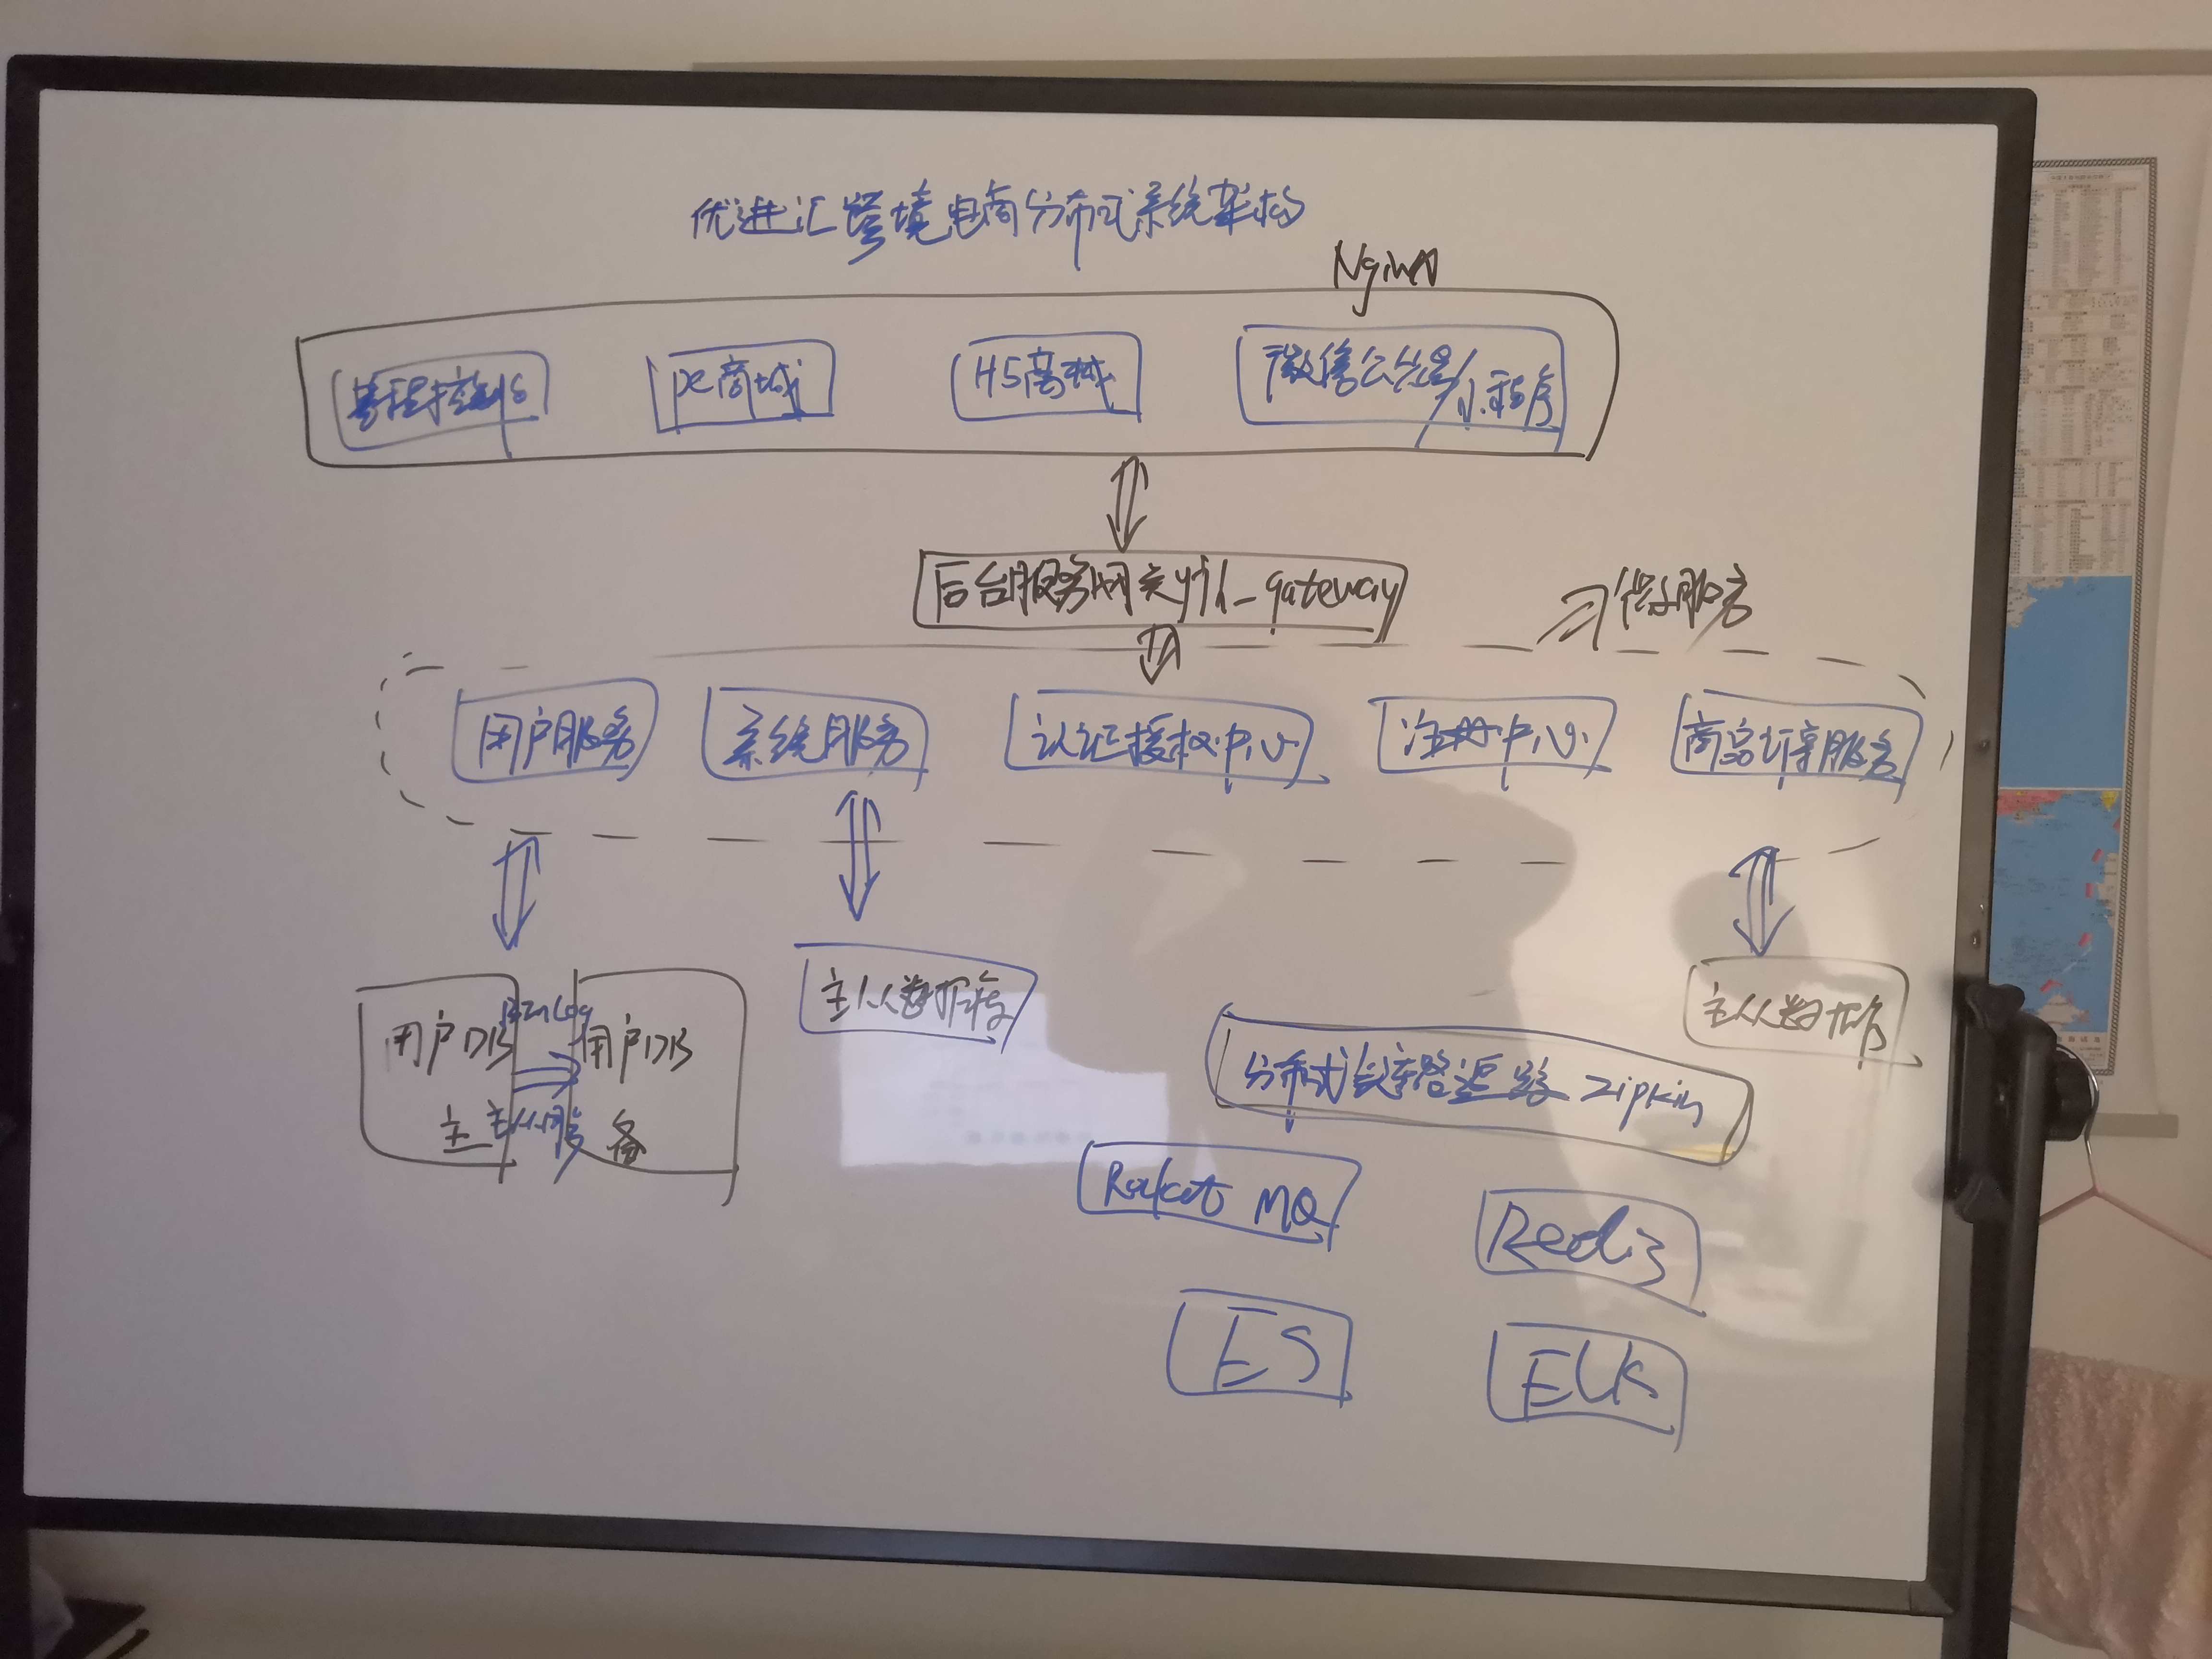 优进汇跨境电商分布式系统架构
Nginx
管理控制台
pc商城
H5商城
微信公众号/小程序
后台服务网关yjh_gateway
微服务
用户服务
系统服务
认证授权中心
注册中心
商品订单服务
用户DB
主
BinLog
主从同步
用户DB
备
主从数据库
主从数据库
分布式链路追踪 Zipkin
Rocket MQ
Redis
ES
ELK